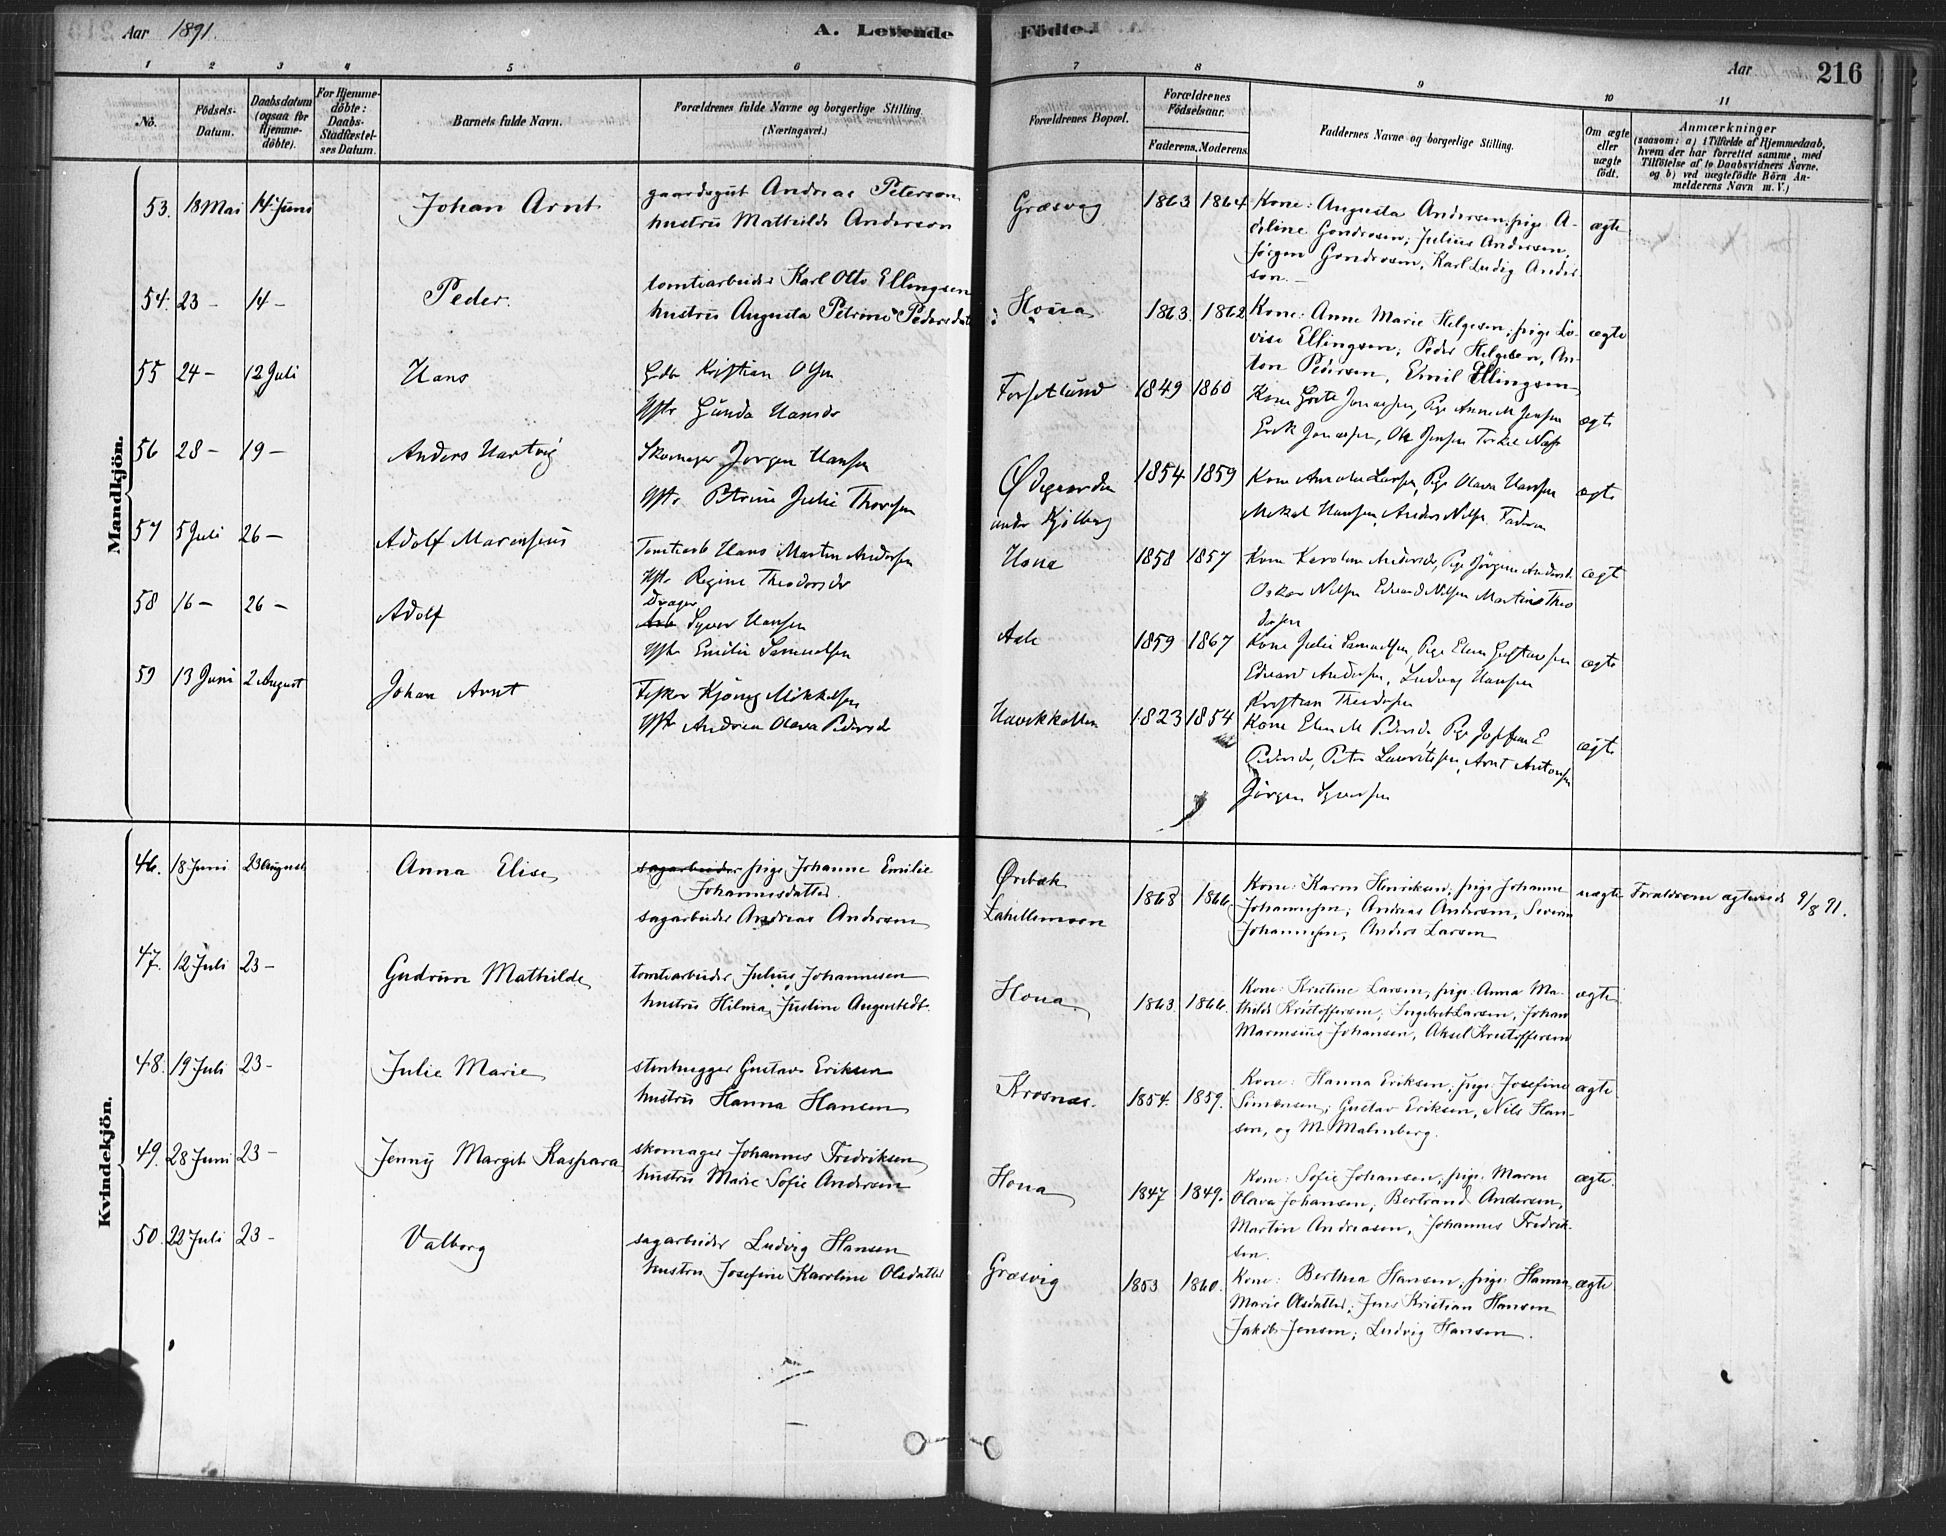 Aar 1891.
A. Levende Födte.
Aar 216
1 2 3 4 5 6 7 8 9 10 11
No.
Födsels-Datum.
Daabsdatum (ogsaa for Hjemme-döbte).
For Hjemme-döbte: Daabs-Stadfæstel-ses Datum.
Barnets fulde Navn.
Forældrenes fulde Navne og borgerlige Stilling.
(Næringsvei.)
Forældrenes Bopæl.
Forældrenes Födselsaar.
Faderens. Moderens.
Faddernes Navne og borgerlige Stilling.
Om ægte eller uægte födt.
Anmærkninger
(saasom: a) i Tilfælde af Hjemmedaab,
hvem der har forrettet samme, med
Tilföielse af to Daabsvidners Navne.
og b) ved uægtefödte Börn An-
melderens Navn m. V.)
Mandkjön.
53. 18 Mai 14 Juni Johan Arnt
gaardsgut Andreas Peterson
hustru Mathilde Anderson
Græsvig 1863 1864
Kone: Augusta Andersen, pige A-
deline Gondrosen; Julius Andersen,
Jörgen Gondrosen, Karl Ludig Ander
son.
ægte
54. 23 - 14 - Peder.
tomtearbeider Karl Otto Ellingsen
hustru Augusta Petrine Pedersdat
Hona 1863. 1862
Kone: Anne Marie Helgesen; pige Lo-
vise Ellingsen; Peder Helgesen, An-
ton Pedersen, Emil Ellingsen
ægte
55 24 - 12 Juli Hans
Gdbr Kristian Olsen
Hstr Gunda Hansdr
Torsetlund 1849 1860
Kone Grete Jonassen, Pige Anne M Jensen
Erik Jonassen, Ole Jensen Torkel Næss
ægte
56 28 - 19 - Anders Hartvig
Skomager Jørgen Hansen
Hstr. Petrine Julie Thorsen
Ødegaarden
under Kjølberg
1854 1859
Kone Larsen, Pige Olava Hansen
Mikal Hansen, Anders Nilsen Faderen
ægte
57 5 Juli 26 - Adolf Marensius
Tomtearb Hans Martin Andersen
Hstr Regine Theodorsdr
Hona 1858 1857
Kone Karoline Andersdr, Pige Jörgine Andersd.
Oskar Nilsen Edvard Nilsen Martins Theo
dorsen
ægt
58 16 - 26 - Adolf
Drager
Arb Syver Hansen
Hstr Emilie Samuelsen
Aale 1859 1867
Kone Julie Samuelsen, Pige Elen Gustavsen
Edvard Andersen, Ludvig Hansen
Kristian Theodorsen
ægte
59 13 Juni 2 August Johan Arnt
Fisker Kjönig Mikkelsen
Hstr Andrea Olava Pedersdr
Havikkollen 1823 1854
Kone Elen M Pedersdr Pige Josefine E
Pedersdr, Peter Lauritsen, Arnt Antonsen
Jörgen Syversen
ægte
Kvindekjön.
46. 18 Juni 23 August Anna Elise
sagarbeider pige Johanne Emilie
Johannesdatter.
sagarbeider Andreas Andersen
Örebæk
Lahellemoen
1868 1866.
Kone: Karen Henriksen, pige Johanne
Johannesen; Andreas Andersen, Severin
Johannesen, Anders Larsen
uægte Forældrene ægteviede 9/8 91.
47. 12 Juli 23 - Gudrun Mathilde
tomtearbeider Julius Johannesen
hustru Hilma Justine Augustsdt.
Hona 1863. 1866.
Kone: Kristine Larsen, pige: Anna Ma-
thilde Kristoffersen; Ingebret Larsen, Johan
Marensius Johansen, Aksel Kristoffersen
ægte
48. 19 Juli 23 - Julie Marie
stenhugger Gustav Eriksen
hustru Hanna Hansen
Krosnæs. 1854. 1859.
Kone: Hanna Eriksen; pige: Josefine
Simensen; Gustav Eriksen, Nils Han-
sen, og M. Malmberg.
ægte
49. 28 Juni 23 - Jenny Margit Kaspara
skomager Johannes Fredriksen
hustru Marie Sofie Andersen
Hona 1847 1849.
Kone: Sofie Johansen, pige: Maren
Olava Johansen; Bertrand Andersen,
Martin Andreasen, Johannes Fredrik-
sen.
ægte.
50. 22 Juli 23 - Valborg
sagarbeider Ludvig Hansen
hustru Josefine Karoline Olsdatter
Græsvig 1853 1860.
Kone: Berthea Hansen; pige Hanna
Marie Olsdatter; Jens Kristian Hansen
Jakob Jensen; Ludvig Hansen.
ægte